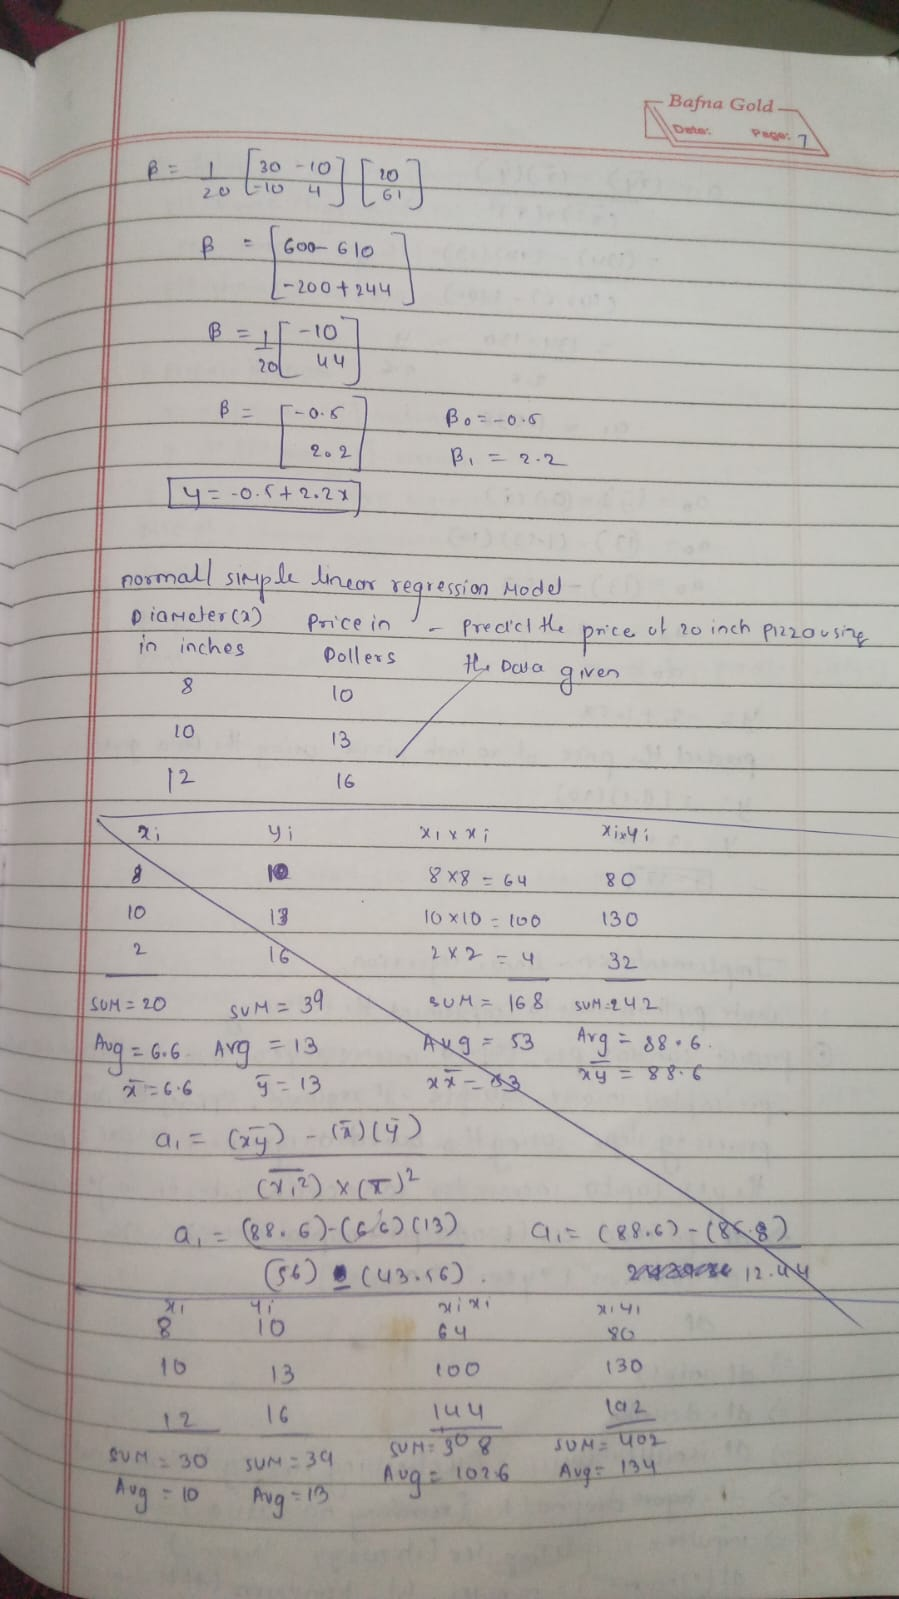 Bafna Gold
Date: Page: 7
β = 1/20 [30 -10 -10 4] [20 61]
β = [600-610
-200+244]
β = 1/20 [-10
44]
β = [-0.5 β0 = -0.5
2.2] β1 = 2.2
y = -0.5+2.2x
normall simple linear regression Model
Diameter(x) Price in - Predict the price of 20 inch pizza using
in inches Dollers the Data given
8 10
10 13
12 16
xi yi xi x xi xi x yi
8 10 8x8 = 64 80
10 13 10x10 = 100 130
2 16 2x2 = 4 32
SUM = 20 SUM = 39 SUM = 168 SUM = 242
Avg = 6.6 Avg = 13 Avg = 53 Avg = 88.6
x̄ = 6.6 ȳ = 13 xx̄ = 53 xȳ = 88.6
a1 = (xȳ) - (x̄)(ȳ)
(x̄i²) x (x̄)²
a1 = (88.6)-(66)(13) a1 = (88.6)-(85.8)
(56) - (43.56) 12.44
xi yi xixi xiyi
8 10 64 80
10 13 100 130
12 16 144 192
SUM = 30 SUM = 39 SUM = 308 SUM = 402
Avg = 10 Avg = 13 Avg = 102.6 Avg = 134